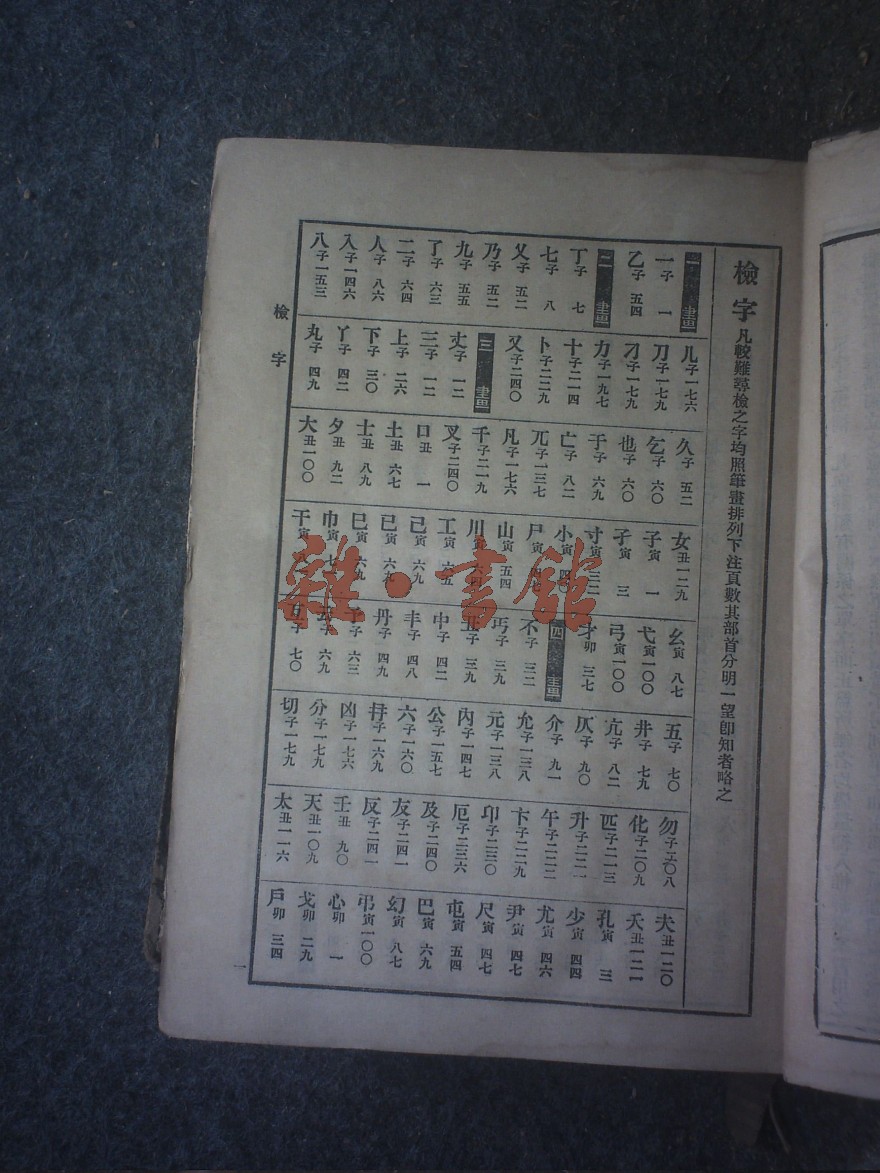 檢字 凡較難尋檢之字均照筆畫排列下注頁數其部首分明一望卽知者略之
一畫
一子 一
乙子 五四
二畫
丁子 七
七子 八
乂子 五二
乃子 五二
九子 五五
了子 六三
二子 六四
人子 八六
入子一四六
八子一五三
儿子一七六
刀子一七九
刁子一七九
力子一九七
十子二一四
卜子二二九
又子二四〇
三畫
丈子 一二
三子 一二
上子 二六
下子 三〇
丫子 四二
丸子 四九
久子 五二
乞子 六〇
也子 六〇
于子 六九
亡子 八二
兀子一三七
凡子一七六
千子二一九
叉子二四〇
口丑 一
土丑 六七
士丑 八九
夕丑 九二
大丑一〇〇
女丑一二九
子寅 一
孑寅 三
寸寅 三二
小寅 四〇
尸寅 四七
山寅 五四
川寅 六四
工寅 六五
己寅 六九
已寅 六九
巳寅 六九
巾寅 七
干寅
幺寅 八七
弋寅一〇〇
弓寅一〇〇
才卯 三七
四畫
不子 三二
丐子 三九
丑子 三九
中子 四二
丰子 四八
丹子 四九
予子 六三
云子 六九
互子 七〇
五子 七〇
井子 七九
亢子 八二
仄子 九〇
介子 九一
允子一三八
元子一三八
內子一四七
公子一五七
六子一六〇
冄子一六九
凶子一七六
分子一七九
切子一七九
勿子二〇八
化子二〇九
匹子二一三
升子二二一
午子二二二
卞子二二九
卬子二三〇
厄子二三六
及子二四〇
友子二四一
反子二四一
壬丑 九〇
天丑一〇九
太丑一一六
夫丑一二〇
夭丑一二一
孔寅 三
少寅 四四
尤寅 四六
尹寅 四七
尺寅 四七
屯寅 五四
巴寅 六九
幻寅 八七
弔寅一〇〇
心卯 一
戈卯 二九
戶卯 三四
檢字
一
雜·書館